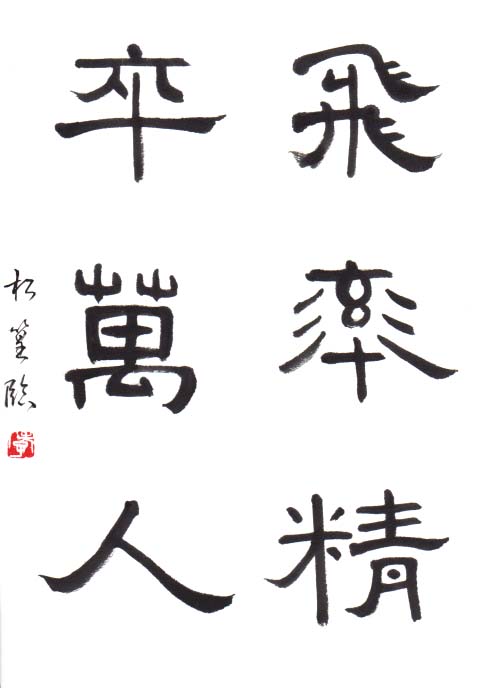 飛率精
卒萬人
松篁臨